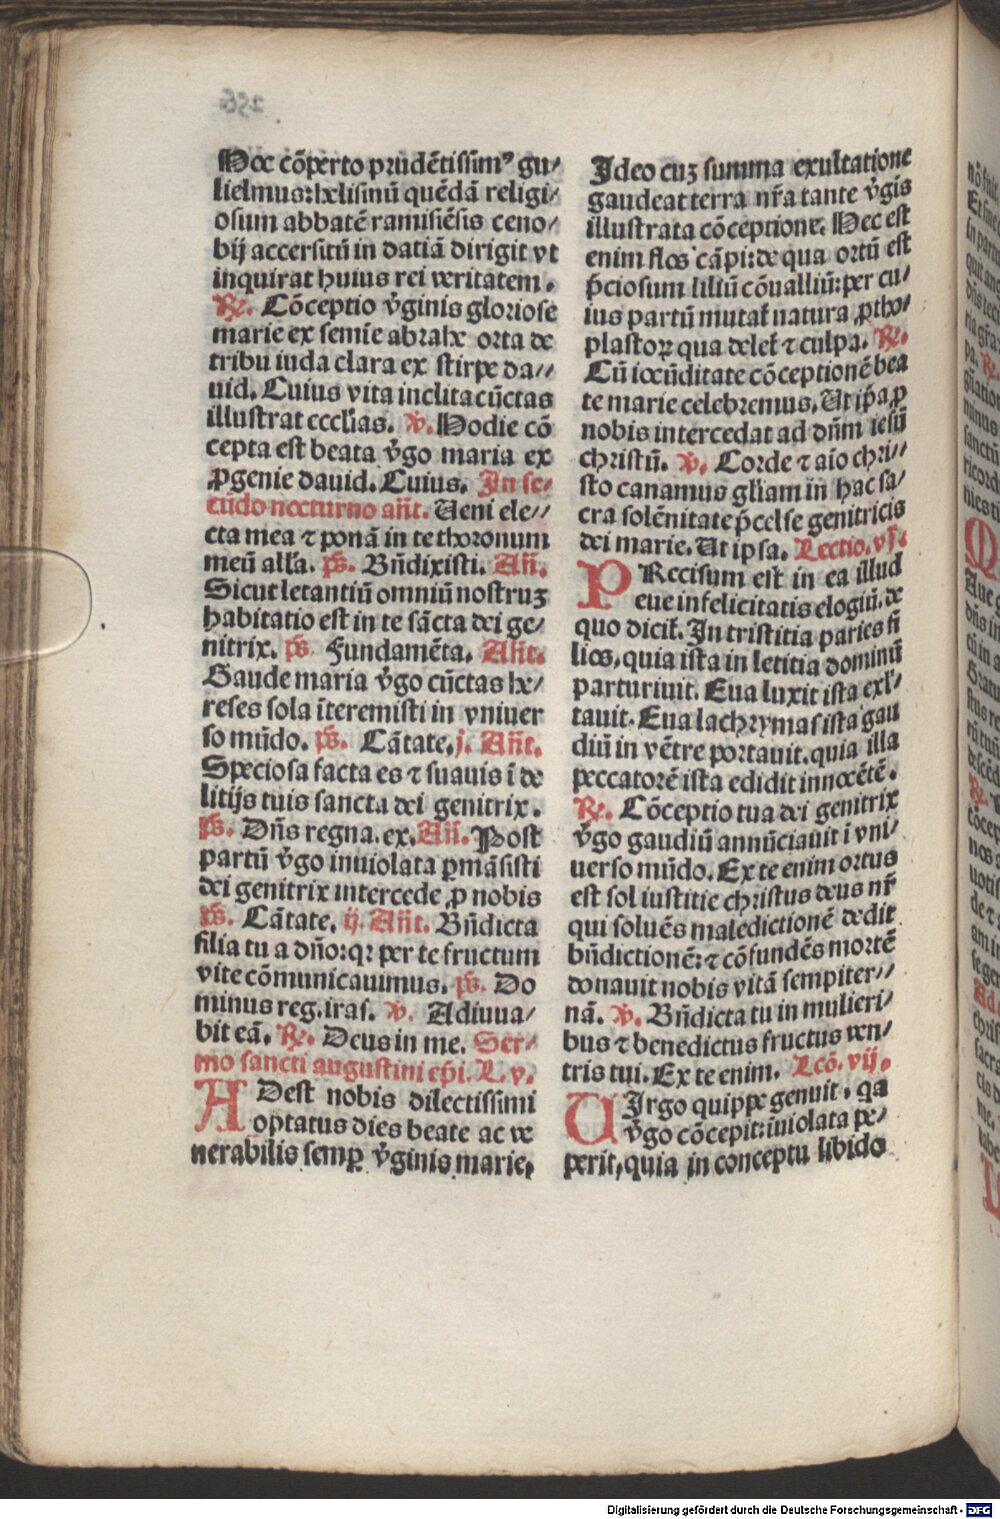 Hoc cõperto prudẽtissimꝰ gu⸗
lielmus: helisinũ quẽdã religi⸗
osum abbatẽ ramisiẽsis ceno⸗
bij accersitũ in datiã dirigit vt
inquirat huius rei veritatem.
℟. Cõceptio v̄ginis gloriose
marie ex semĩe abrahe orta de
tribu iuda clara ex stirpe da⸗
uid. Cuius vita inclita cũctas
illustrat eccl̃ias. ℣. Hodie cõ
cepta est beata v̄go maria ex
ꝓgenie dauid. Cuius. In se⸗
cũdo nocturno añt. Ueni ele⸗
cta mea ⁊ ponã in te thoronum
meũ all'a. ps̃. Bñdixisti. Añ.
Sicut letantiũ omniũ nostruꝫ
habitatio est in te sãcta dei ge⸗
nitrix. ps̃. Fundamẽta. Añt.
Gaude maria v̄go cũctas he⸗
reses sola ĩteremisti in vniuer
so mũdo. ps̃. Cãtate. j. Añt.
Speciosa facta es ⁊ suauis ĩ de
litijs tuis sancta dei genitrix.
ps̃. Dñs regna. ex. Añ. Post
partũ v̄go inuiolata ꝑmãsisti
dei genitrix intercede ꝓ nobis
ps̃. Cãtate. ij. Añt. Bñdicta
filia tu a dño: qꝛ per te fructum
vite cõmunicauimus. ps̃. Do
minus reg. iras. ℣. Adiuua⸗
bit eã. ℟. Deus in me. Ser⸗
mo sancti augustini epĩ. L. v.
ADest nobis dilectissimi
optatus dies beate ac ve
nerabilis semꝑ v̄ginis marie,
Ideo cuꝫ summa exultatione
gaudeat terra nr̃a tante v̄gĩs
illustrata cõceptione. Hec est
enim flos cãpi: de qua ortũ est
p̃ciosum liliũ cõualliũ: per cu⸗
ius partũ mutat̃ natura ꝓtho⸗
plastoꝝ qua delet̃ ⁊ culpa. ℟.
Cũ iocũditate cõceptionẽ bea
te marie celebremus. Ut ip̃a ꝓ
nobis intercedat ad dñm iesũ
christũ. ℣. Corde ⁊ aĩo chri⸗
sto canamus gl̃iam in hac sa⸗
cra solẽnitate p̃celse genitricis
dei marie. Ut ipsa. Lectio. vj.
PRecisum est in ea illud
eue infelicitatis elogiũ. de
quo dicit̃. In tristitia paries fi
lios, quia ista in letitia dominũ
parturiuit. Eua luxit ista exl⸗
tauit. Eua lachrymas ista gau
diũ in vẽtre portauit. quia illa
peccatorẽ ista edidit innocẽtẽ.
℟. Cõceptio tua dei genitrix
v̄go gaudiũ annũciauit ĩ vni⸗
uerso mũdo. Ex te enim ortus
est sol iustitie christus deus nr̃
qui soluẽs maledictionẽ dedit
bñdictionẽ: ⁊ cõfundẽs mortẽ
donauit nobis vitã sempiter⸗
nã. ℣. Bñdicta tu in mulieri⸗
bus ⁊ benedictus fructus ven⸗
tris tui. Ex te enim. Lcõ. vij.
UIrgo quippe genuit, qa
v̄go cõcepit: ĩuiolata pe⸗
perit, quia in conceptu libido
Digitalisierung gefördert durch die Deutsche Forschungsgemeinschaft - DFG